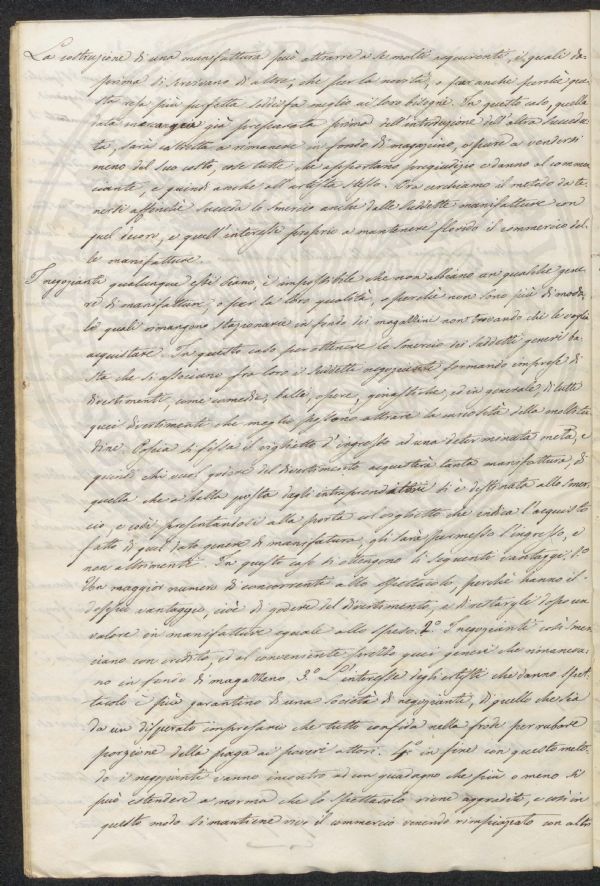 La costruzione di una manifattura può attrarre a se molti acquirenti, i quali da
prima si servivano di altre; che per la novità, o fors'anche perchè que
sta resa più perfetta sodisfa meglio ai loro bisogni. In questo caso, quella
data già preparata prima dell'introduzione dell'altra succeda
ta, sarà costretta a rimanere in fondo di magazzino, oppure a vendersi
meno del suo costo, cose tutte che apportano pregiudizio e danno al commer
ciante, e quindi anche all'artista stesso. Ora cerchiamo il metodo da te
nersi affinché succeda lo smercio anche dalle suddette manifatture con
quel decoro, e quell'interesse proprio a mantenere florido il commercio del
le manifatture.
I negozianti qualunque essi siano, è impossibile che non abbiano un qualche gene
re di manifatture, o per la loro qualità, o perchè non sono più di moda,
le quali rimangono stazionarie in fondo dei magazzini non trovando chi le voglia
acquistare. In questo caso per ottenere lo smercio dei suddetti generi ba
sta che si associno fra loro i suddetti negozianti formando imprese di
divertimenti, come comedie, balli, opere, ginastiche, ed in generale, di tutti
quei divertimenti che meglio possono attrare la curiosità della moltitu
dine. Poscia si fissa il viglietto d'ingresso ad una determinata metà, e
quindi chi vuol godere del divertimento acquisterà tanta manifattura, di
quella che a bella posta dagli intraprenditori si è destinata allo smer
cio, e così presentandosi alla porta col viglietto che indica l'acquisto
fatto di quel dato genere di manifattura, gli sarà permesso l'ingresso, e
non altrimenti. In questo caso si ottengono li seguenti vantaggi: 1.º
Un maggior numero di concorrenti allo spettacolo, perchè hanno il
doppio vantaggio, cioè di godere del divertimento, e di restargli dopo un
valore in manifatture eguale alla spesa. 2.º I negozianti così smer
ciano con credito, ed al conveniente prezzo quei generi che rimaneva
no in fondo di magazzeno. 3.º L'interesse degli artisti che danno spet
tacolo è più garantino di una società di negozianti, di quello che sia
da un disperato impresario che tutto confida nella frode per rubare
porzione della paga ai poveri attori. 4.º in fine con questo meto
do i negozianti vanno incontro ad un guadagno che più o meno si
può estendere a norma che lo spettacolo viene aggradito, e così in
questo modo si mantiene vivo il commercio venendo rimpiazzato con altri